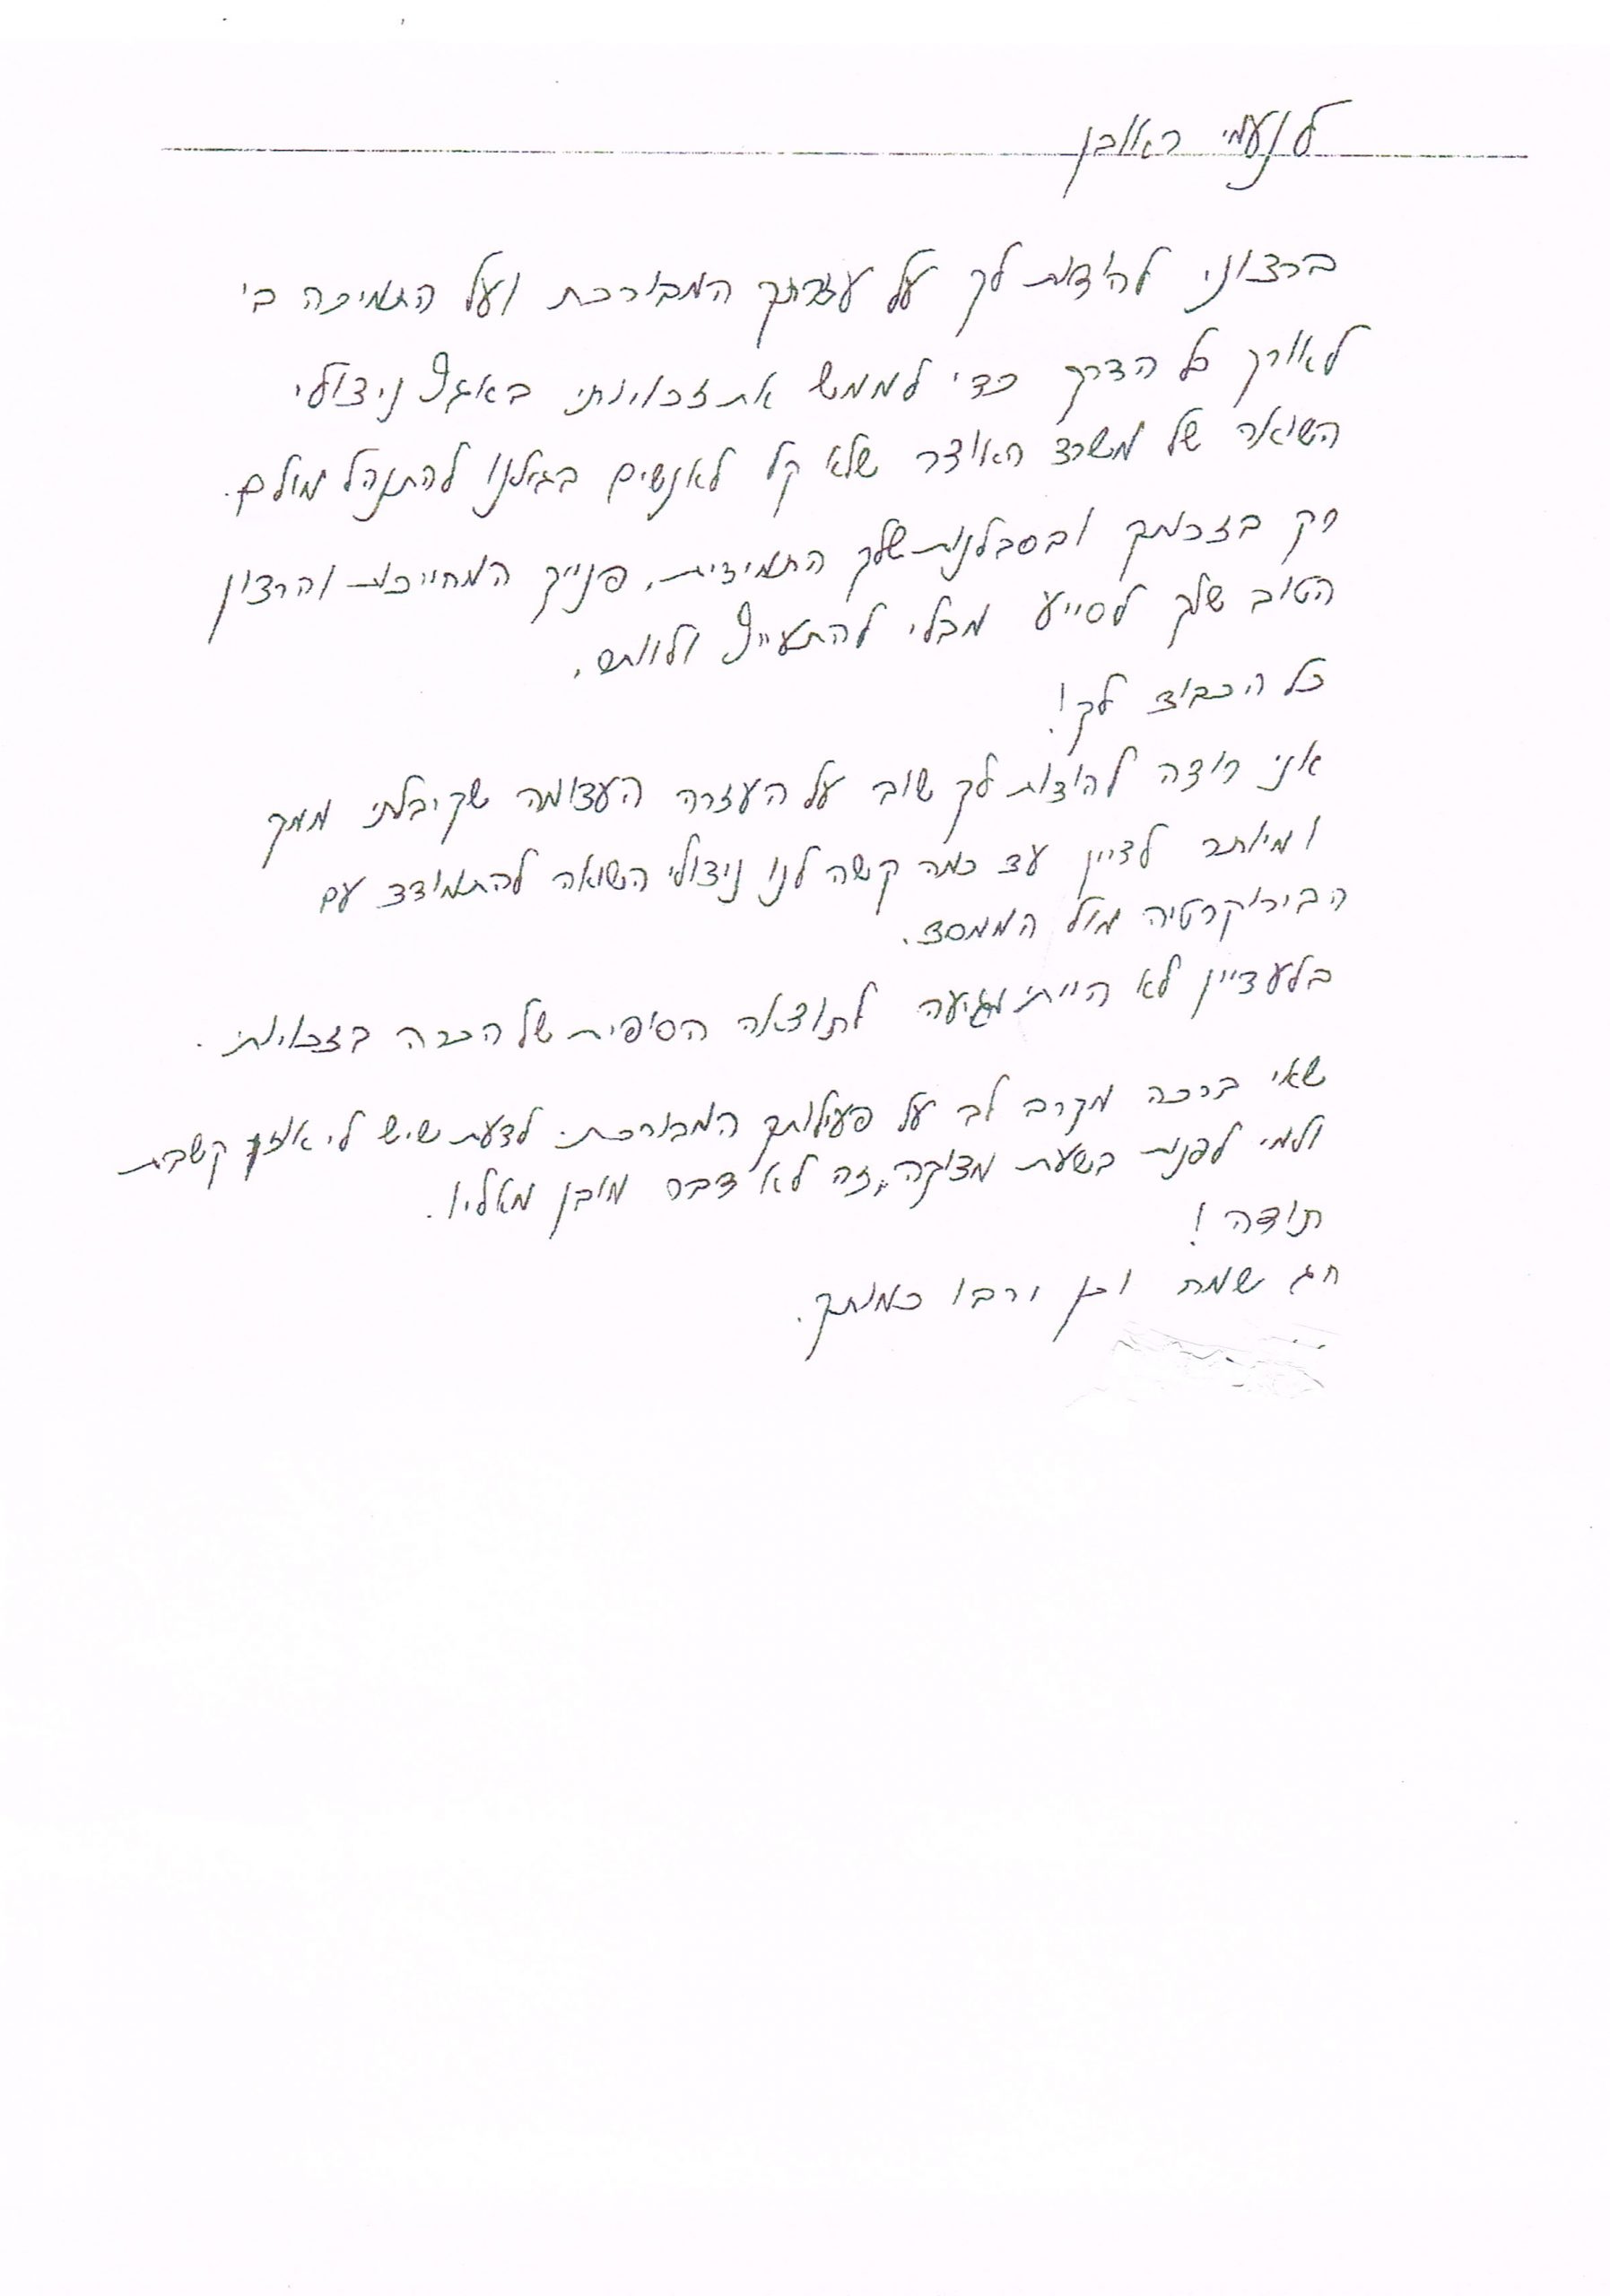 לנעמי ראובן
ברצוני להודות לך על עזרתך המבורכת ועל התמיכה בי
לאורך כל הדרך כדי לממש את זכויותי באגף ניצולי
השואה של משרד האוצר שלא קל לאנשים בגילנו להתנהל מולם.
רק בזכותך ובסבלנות שלך התמידית, פנייך המחייכות והרצון
הטוב שלך לסייע מבלי להתעייף ולוותר.
כל הכבוד לך!
אני רוצה להודות לך שוב על העזרה העצומה שקיבלתי ממך
ומיותר לציין עד כמה קשה לנו ניצולי השואה להתמודד עם
הבירוקרטיה מול הממסד.
בלעדייך לא הייתי מגיעה לתוצאה הסופית של הכרה בזכויותי.
שאי ברכה מקרב לב על פעילותך המבורכת. לדעת שיש לי אוזן קשבת
ולמי לפנות בשעת מצוקה, זה לא דבר מובן מאליו.
תודה!
חג שמח וכן ירבו כמותך.